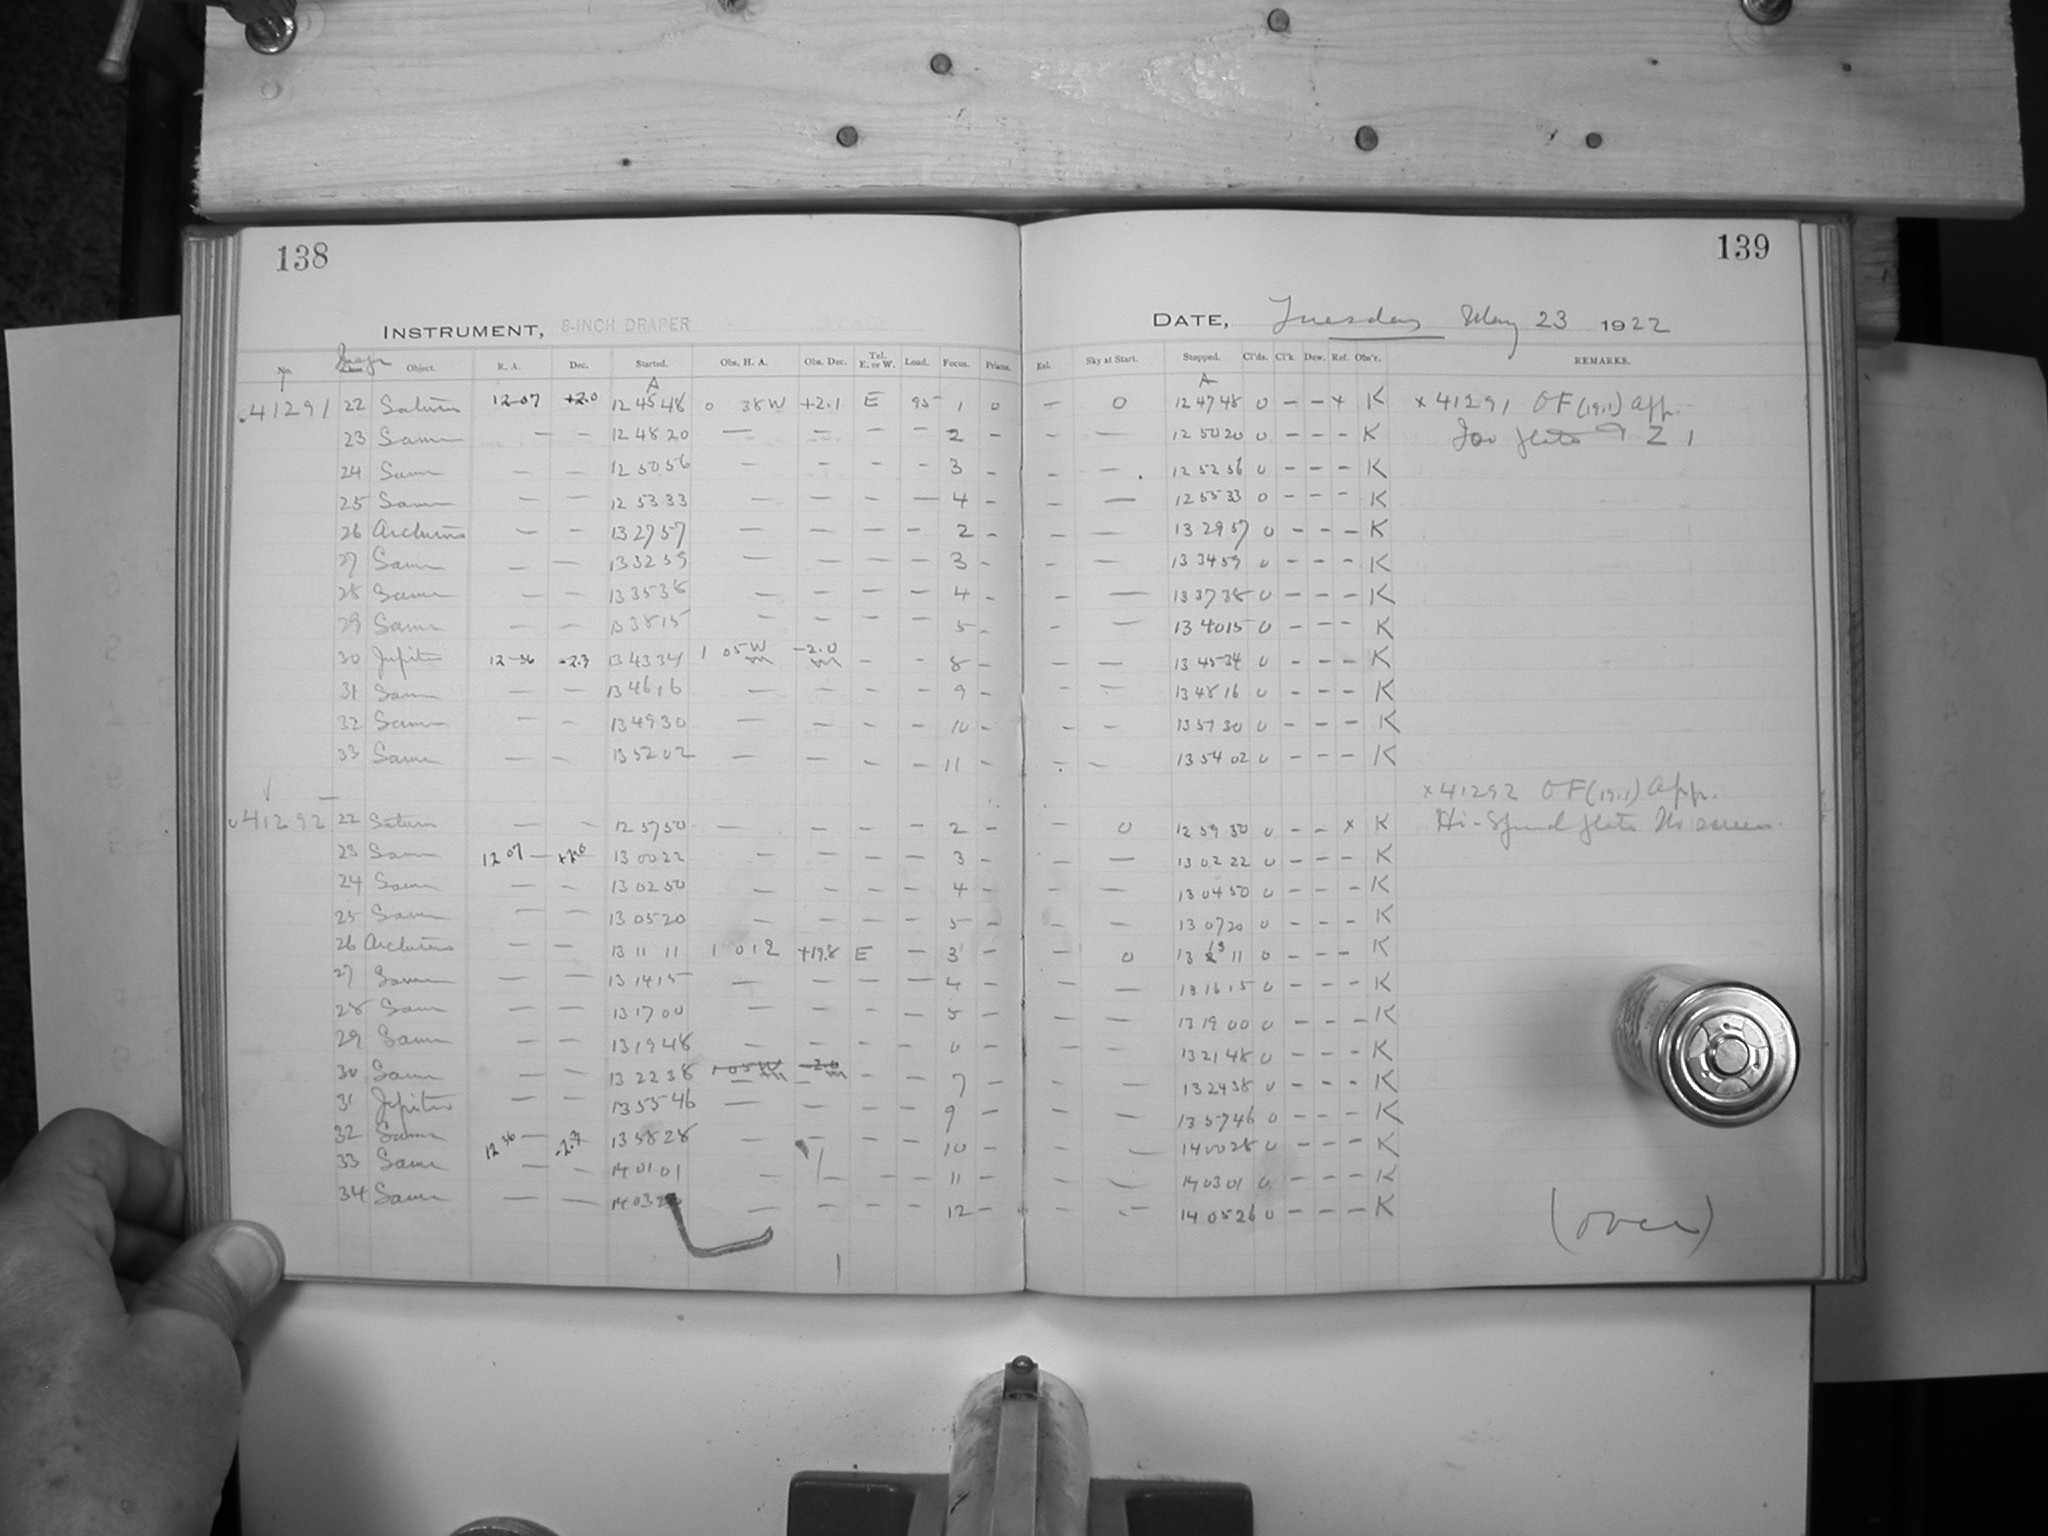 138
139
INSTRUMENT, 8-INCH DRAPER
DATE, Tuesday May 23 1922
No. Image Object. R. A. Dec. Started. Obs. H. A. Obs. Dec. Tel. E. or W. Load. Focus. Prisms. Exl. Sky at Start. Stopped. Cl'ds. Cl'k. Dew. Ref. Obs'r. REMARKS.
A A
41291 22 Saturn 12-07 +2.0 12 45 48 0 38W +2.1 E 95 1 0 — 0 12 47 48 0 - - x K x 41291 OF (19.1) App.
23 Same — — 12 48 20 — — — — 2 — — — 12 50 20 0 - - - K
24 Same — — 12 50 56 — — — — 3 — — — 12 52 56 0 - - - K
25 Same — — 12 53 33 — — — — 4 — — — 12 55 33 0 - - - K
26 Arcturus — — 13 27 57 — — — — 2 — — — 13 29 57 0 - - - K
27 Same — — 13 32 59 — — — — 3 — — — 13 34 59 0 - - - K
28 Same — — 13 35 38 — — — — 4 — — — 13 37 38 0 - - - K
29 Same — — 13 38 15 — — — — 5 — — — 13 40 15 0 - - - K
30 Jupiter 12-36 -2.3 13 43 34 1 05W -2.0 — — 8 — — — 13 45 34 0 - - - K
31 Same — — 13 46 16 — — — — 9 — — — 13 48 16 0 - - - K
32 Same — — 13 49 30 — — — — 10 — — — 13 51 30 0 - - - K
33 Same — — 13 52 02 — — — — 11 — — — 13 54 02 0 - - - K
x 41292 OF (19.1) App.
41292 22 Saturn — — 12 57 50 — — — — 2 — — 0 12 59 30 0 - - x K Hi-Speed plate No screen
23 Same 12 07 +2.0 13 00 22 — — — — 3 — — — 13 02 22 0 - - - K
24 Same — — 13 02 50 — — — — 4 — — — 13 04 50 0 - - - K
25 Same — — 13 05 20 — — — — 5 — — — 13 07 20 0 - - - K
26 Arcturus — — 13 11 11 1 012 +19.8 E — 3 — — 0 13 13 11 0 - - - K
27 Same — — 13 14 15 — — — — 4 — — — 13 16 15 0 - - - K
28 Same — — 13 17 00 — — — — 5 — — — 13 19 00 0 - - - K
29 Same — — 13 19 48 — — — — — — — 13 21 48 0 - - - K
30 Same — — 13 22 38 1 05W -2.0 — — 7 — — — 13 24 38 0 - - - K
31 Jupiter — — 13 55 46 — — — — 9 — — — 13 57 46 0 - - - K
32 Same 12 36 -2.3 13 58 28 — — — — 10 — — — 14 00 28 0 - - - K
33 Same — — 14 01 01 — — — — 11 — — — 14 03 01 0 - - - K
34 Same — — 14 03 — — 12 — — — 14 05 26 0 - - - K
(over)